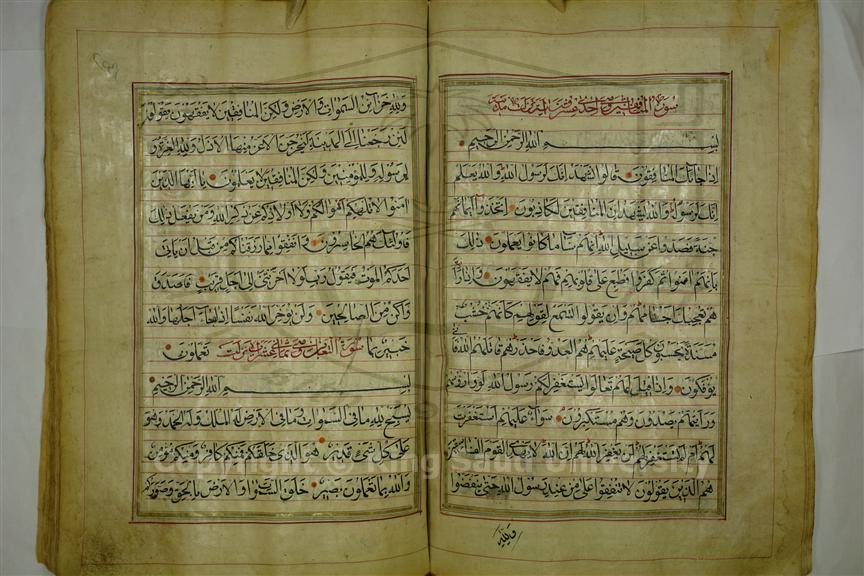 سورة المنافقين احدی عشرة آية نزلت بمدينة
بسم الله الرحمن الرحيم
اذا جاءك المنافقون قالوا نشهد انك لرسول الله والله يعلم
انك لرسوله والله يشهد ان المنافقين لكاذبون اتخذوا ايمانهم
جنة فصدوا عن سبيل الله انهم ساء ما كانوا يعملون ذلك
بانهم امنوا ثم كفروا فطبع على قلوبهم فهم لا يفقهون واذا رأيتـ
هم تعجبك اجسامهم وان يقولوا تسمع لقولهم كانهم خشب
مسندة يحسبون كل صيحة عليهم هم العدو فاحذرهم قاتلهم الله انى
يؤفكون واذا قيل لهم تعالوا يستغفر لكم رسول الله لووا رؤسهم
ورايتهم يصدون وهم مستكبرون سواء عليهم استغفرت
لهم ام لم تستغفر لهم لن يغفر الله لهم ان الله لا يهدى القوم الفاسقين
هم الذين يقولون لا تنفقوا على من عند رسول الله حتى ينفضوا
ولله
ولله خزائن السموات والارض ولكن المنافقين لا يفقهون يقولون
لئن رجعنا الى المدينة ليخرجن الاعز منها الاذل ولله العزة و
لرسوله وللمؤمنين ولكن المنافقين لا يعلمون يا ايها الذين
امنوا لا تلهكم اموالكم ولا اولادكم عن ذكر الله ومن يفعل ذلك
فاولئك هم الخاسرون وانفقوا مما رزقناكم من قبل ان ياتى
احدكم الموت فيقول رب لولا اخرتنى الى اجل قريب فاصدق
واكن من الصالحين ولن يؤخر الله نفسا اذا جاء اجلها والله
خبير بما تعملون سورة التغابن ثمانى عشر نزلت
بسم الله الرحمن الرحيم
يسبح لله ما فى السموات وما فى الارض له الملك وله الحمد وهو
على كل شىء قدير هو الذى خلقكم فمنكم كافر ومنكم مؤمن
والله بما تعملون بصير خلق السموات والارض بالحق وصوركم